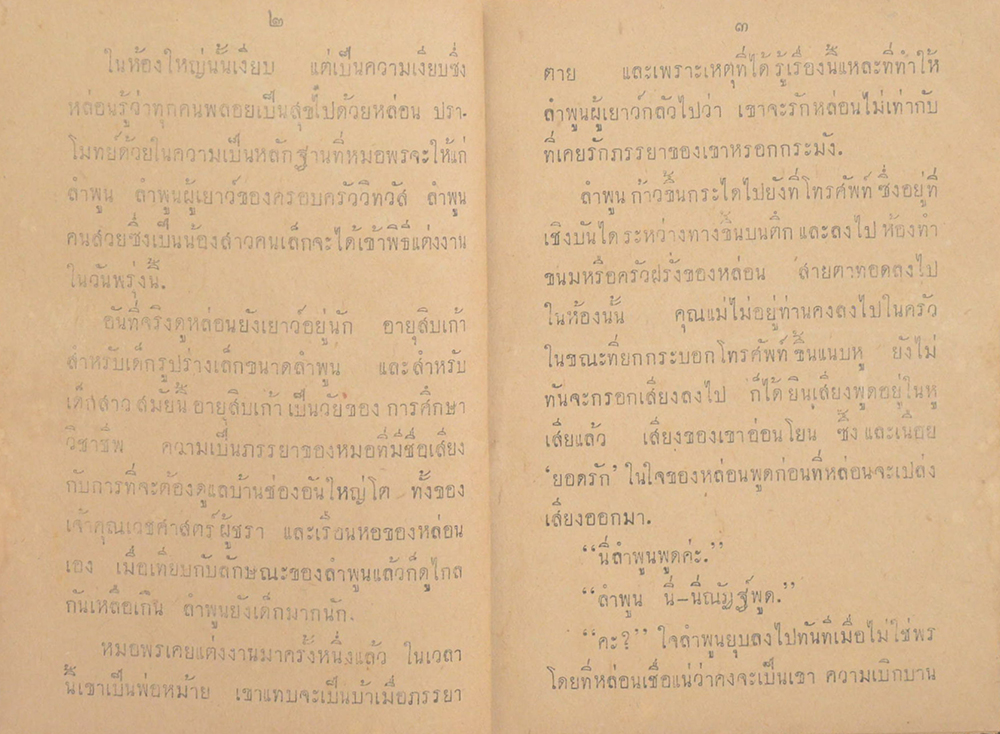 ๒
ในห้องใหญ่นั้นเงียบ แต่เป็นความเงียบซึ่ง
หล่อนรู้ว่าทุกคนพลอยเป็นสุขไปด้วยหล่อน ปรา-
โมทย์ด้วยในความเป็นหลักฐานที่หมอพรจะให้แก่
ลำพูน ลำพูนผู้เยาว์ของครอบครัววิทวัส ลำพูน
คนสวยซึ่งเป็นน้องสาวคนเล็กจะได้เข้าพิธีแต่งงาน
ในวันพรุ่งนี้.
อันที่จริงดูหล่อนยังเยาว์อยู่นัก อายุสิบเก้า
สำหรับเด็กรูปร่างเล็กขนาดลำพูน และสำหรับ
เด็สสาวสมัยนี้ อายุสิบเก้า เป็นวัยของ การศึกษา
วิชาชีพ ความเป็นภรรยาของหมอที่มีชื่อเสียง
กับการที่จะต้องดูแลบ้านช่องอันใหญ่โต ทั้งของ
เจ้าคุณเวชศาสตร์ผู้ชรา และเรือนหอของหล่อน
เอง เมื่อเทียบกับลักษณะของลำพูนแล้วก็ดูไกล
กันเหลือเกิน ลำพูนยังเด็กมากนัก.
หมอพรเคยแต่งงานมาครั้งหนึ่งแล้ว ในเวลา
นี้เขาเป็นพ่อหม้าย เขาแทบจะเป็นบ้าเมื่อภรรยา
๓
ตาย และเพราะเหตุที่ได้รู้เรื่องนี้แหละที่ทำให้
ลำพูนผู้เยาว์กลัวไปว่า เขาจะรักหล่อนไม่เท่ากับ
ที่เคยรักภรรยาของเขาหรอกกระมัง.
ลำพูนก้าวขึ้นกระไดไปยังที่โทรศัพท์ ซึ่งอยู่ที่
เชิงบันไดระหว่างทางขึ้นบนตึก และลงไปห้องทำ
ขนมหรือครัวฝรั่งของหล่อน สายตาทอดลงไป
ในห้องนั้น คุณแม่ไม่อยู่ท่านคงลงไปในครัว
ในขณะที่ยกกระบอกโทรศัพท์ขึ้นแนบหู ยังไม่
ทันจะกรอกเสียงลงไป ก็ได้ยินเสียงพูดอยู่ในหู
เสียแล้ว เสียงของเขาอ่อนโยน ซึ้งและเนือย
‘ยอดรัก’ ในใจของหล่อนพูดก่อนที่หล่อนจะเปล่ง
เสียงออกมา.
“นี่ลำพูนพูดค่ะ.”
“ลำพูน นี่—นี่ณัฏฐ์พูด.”
“คะ?” ใจลำพูนยุบลงไปทันทีเมื่อไม่ใช่พร
โดยที่หล่อนเชื่อแน่ว่าคงจะเป็นเขา ความเบิกบาน